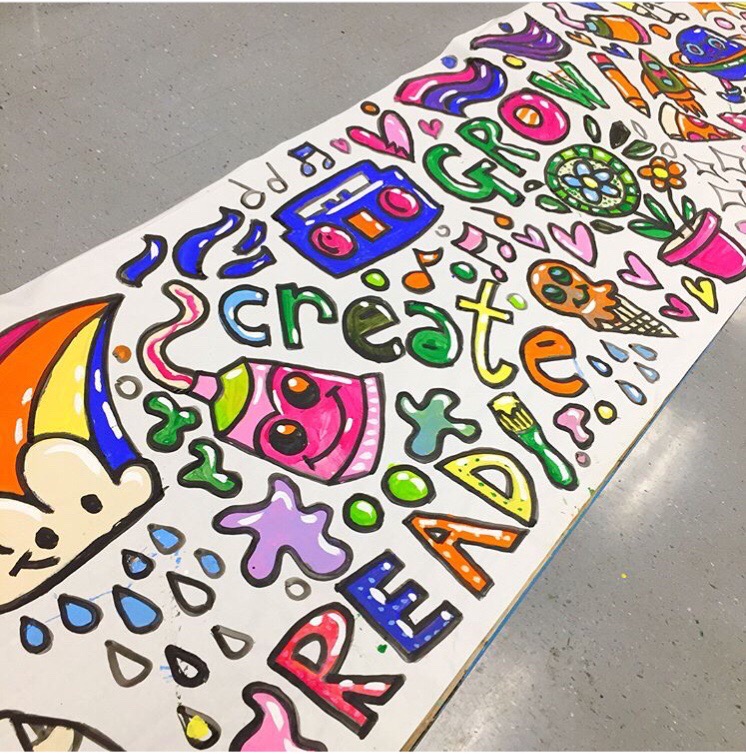 GROW
create
READ